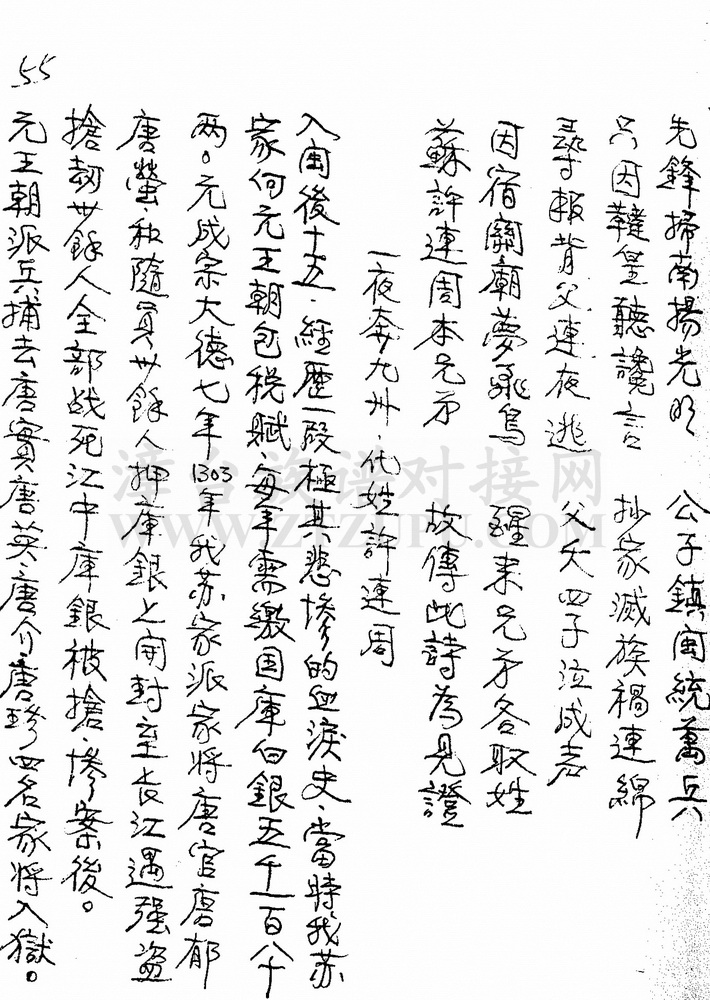 先鋒掃南揚光明 公子鎮閩統萬兵
只因韃皇聽讒言 抄家滅族禍連綿
尋報背父連夜逃 父大四子泣成志
因宿關廟夢飛鳥 醒来兄弟各取姓
蘇許連周本兄弟 故傳此詩為見證
一夜奔九州、代姓許連周
入閩後十五、經歷一段極其悲慘的血淚史、當時我苏
家何元王朝包税賦、每年需繳国庫白銀五千一百八十
两。元成宗大德七年1303年我苏家派家將唐官唐郁
唐螢、和隨員卅餘人押庫銀上開封至長江遇强盗
搶刼卅餘人全部战死江中庫銀被搶、慘案後。
元王朝派兵捕去唐實唐英、唐介唐珍四名家将入獄。
55
漳台族谱对接网
WWW.ZTZUPU.COM